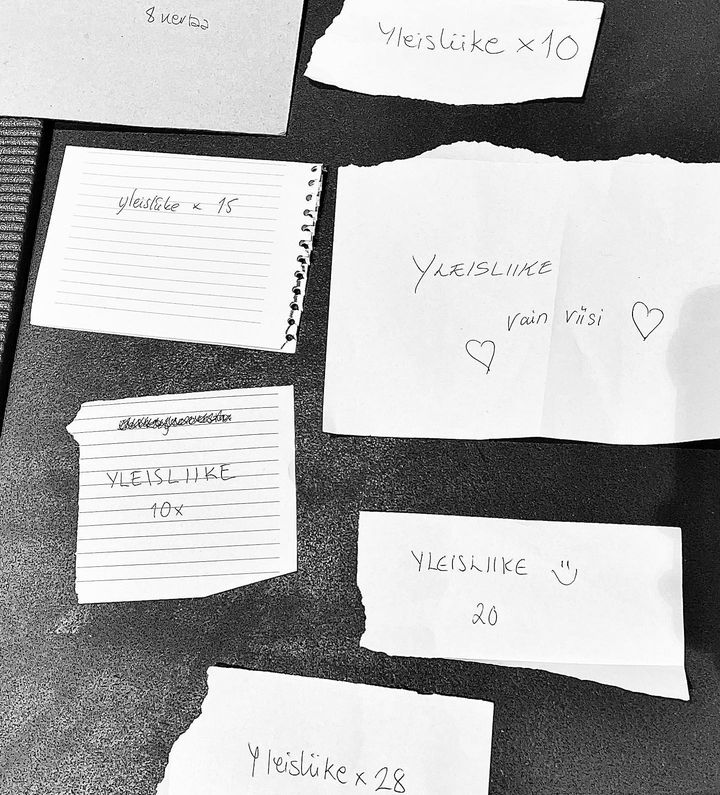 8 kertaa
Yleisliike x 10
yleisliike x 15
YLEISLIIKE
vain viisi
YLEISLIIKE
10x
YLEISLIIKE
20
Yleisliike x 28